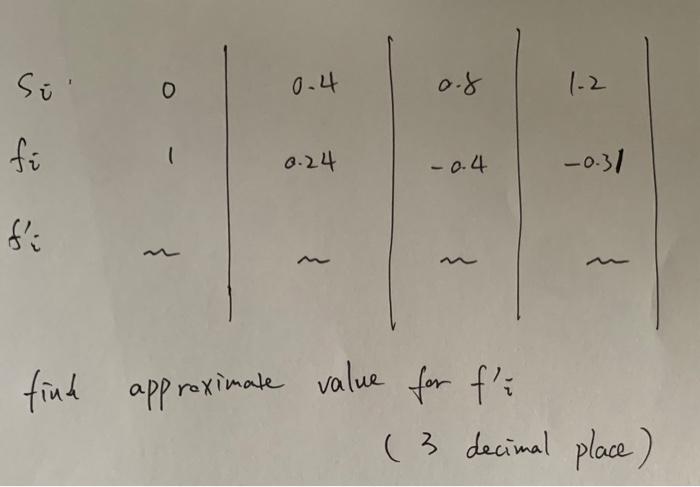 Si 0 0.4 0.8 1.2
fi 1 0.24 -0.4 -0.31
f'i ~ ~ ~ ~
find approximate value for f'i
( 3 decimal place )